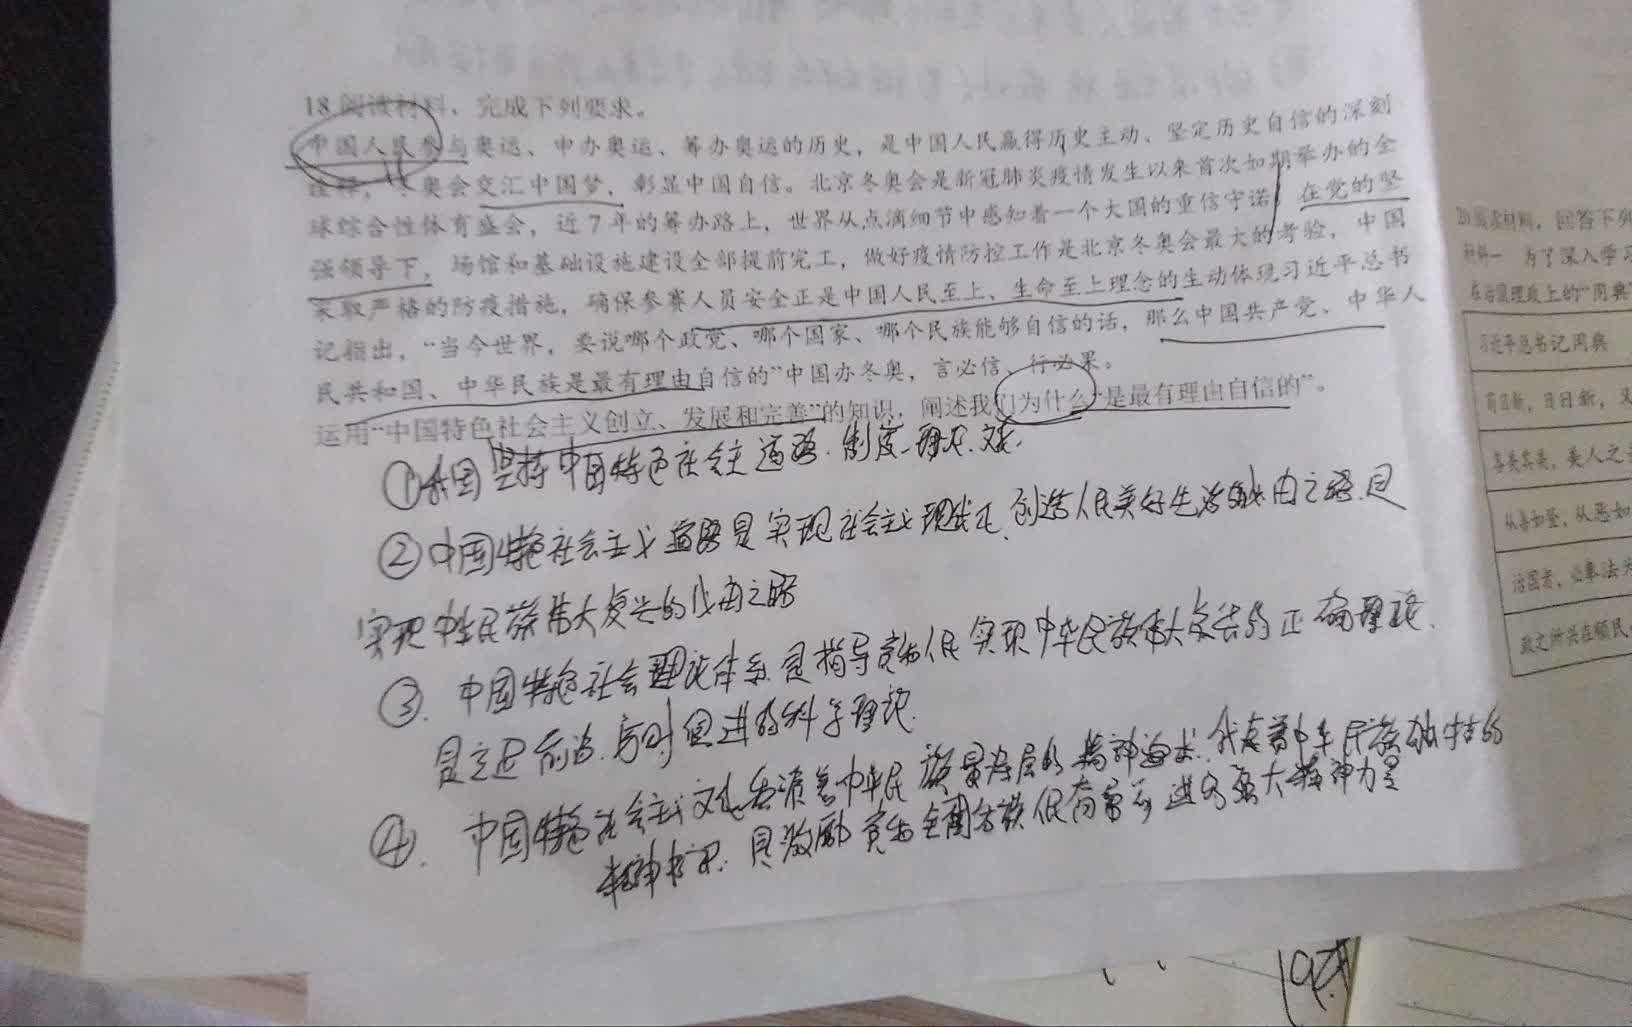 18.阅读材料，完成下列要求。
中国人民参与奥运、申办奥运、筹办奥运的历史，是中国人民赢得历史主动、坚定历史自信的深刻
诠释，冬奥会交汇中国梦，彰显中国自信。北京冬奥会是新冠肺炎疫情发生以来首次如期举办的全
球综合性体育盛会，近7年的筹办路上，世界从点滴细节中感知着一个大国的重信守诺，在党的坚
强领导下，场馆和基础设施建设全部提前完工，做好疫情防控工作是北京冬奥会最大的考验，中国
采取严格的防疫措施，确保参赛人员安全正是中国人民至上、生命至上理念的生动体现习近平总书
记指出，“当今世界，要说哪个政党、哪个国家、哪个民族能够自信的话，那么中国共产党、中华人
民共和国、中华民族是最有理由自信的”中国办冬奥，言必信、行必果。
运用“中国特色社会主义创立、发展和完善”的知识，阐述我们为什么“是最有理由自信的”。
①我国坚持中国特色社会主道路、制度、理论、文化.
②中国特色社会主义道路是实现社会主义现代化、创造人民美好生活的必由之路.是
实现中华民族伟大复兴的必由之路
③.中国特色社会理论体系是指导党和人民实现中华民族伟大复兴的正确理论.
是立足前沿.与时俱进的科学理论.
④.中国特色社会主义文化 着中华民族最深层的精神追求.代表着中华民族独特的
精神标识.是激励党和全国各族人民奋勇 进的强大精神力量
20.阅读材料，回答下列
材料一 为了深入学习
在治国理政上的“用典”
习近平总书记用典
苟日新，日日新，又
各美其美，美人之美
从善如登，从恶如
治国者，必奉法
政之所兴在顺民